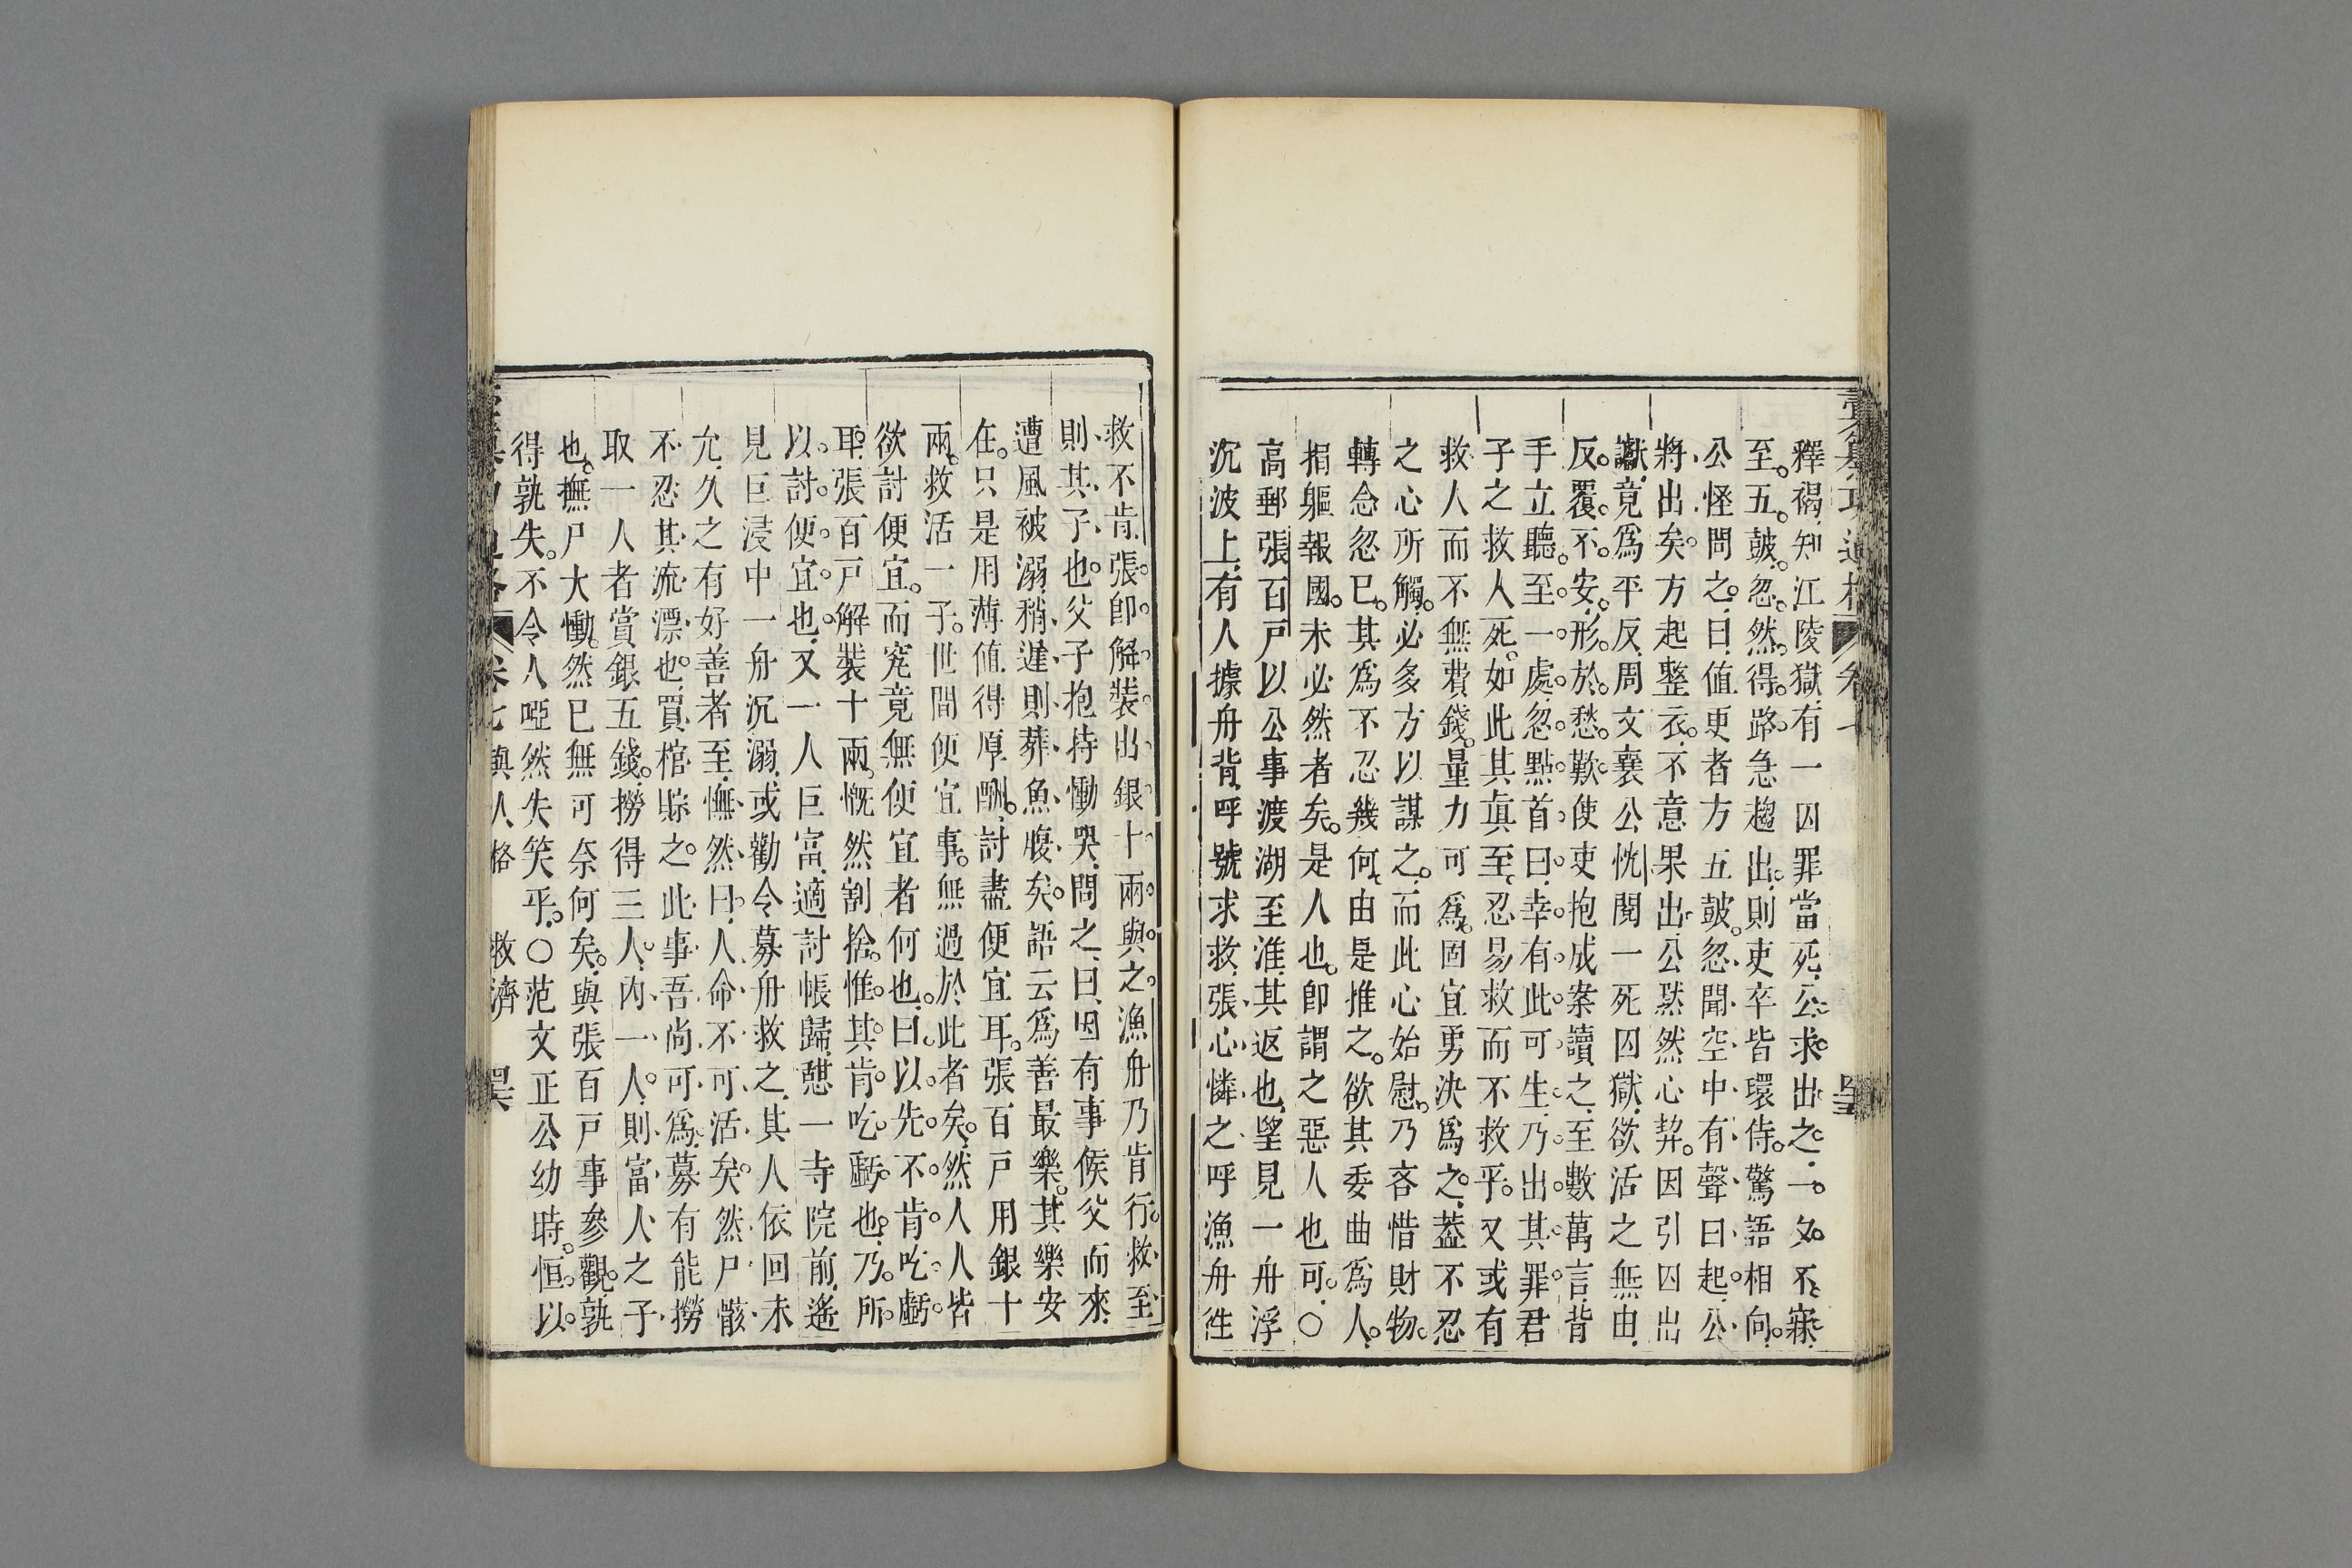 釋褐知江陵獄有一囚罪當死公求出之一夕不寐
至五鼓忽然得路急趨出則吏卒皆環侍驚語相向
公怪問之曰値更者方五鼓忽聞空中有聲曰起公
將出矣方起整衣不意果出公默然心契因引囚出
讞竟爲平反周文襄公恍閱一死囚獄欲活之無由
反覆不安形於愁歎使吏抱成案讀之至數萬言背
手立聽至一處忽點首曰幸有此可生乃出其罪君
子之救人死如此其眞至忍易救而不救乎又或有
救人而不無費錢量力可爲固宜勇決爲之葢不忍
之心所觸必多方以謀之而此心始慰乃吝惜財物
轉念忽已其爲不忍幾何由是推之欲其委曲爲人
捐軀報國未必然者矣是人也卽謂之惡人也可〇
高郵張百戸以公事渡湖至淮其返也望見一舟浮
沉波上有人據舟背呼號求救張心憐之呼漁舟徃
救不肯張卽解裝出銀十兩與之漁舟乃肯行救至
則其子也父子抱持慟哭問之曰因有事候父而來
遭風被溺稍遲則葬魚腹矣語云爲善最樂其樂安
在只是用薄値得厚酬討盡便宜耳張百戸用銀十
兩救活一子世間便宜事無過於此者矣然人人皆
欲討便宜而究竟無便宜者何也曰以先不肯吃虧
耳張百戸解裝十兩慨然割捨惟其肯吃虧也乃所
以討便宜也又一人巨富適討帳歸憩一寺院前遙
見巨浸中一舟沉溺或勸令募舟救之其人依回未
允久之有好善者至憮然曰人命不可活矣然尸骸
不忍其流漂也買棺賑之此事吾尚可爲募有能撈
取一人者賞銀五錢撈得三人內一人則富人之子
也撫尸大慟然已無可奈何矣與張百戸事參觀孰
得孰失不令人啞然失笑乎〇范文正公幼時恒以
卷七與人格 救濟